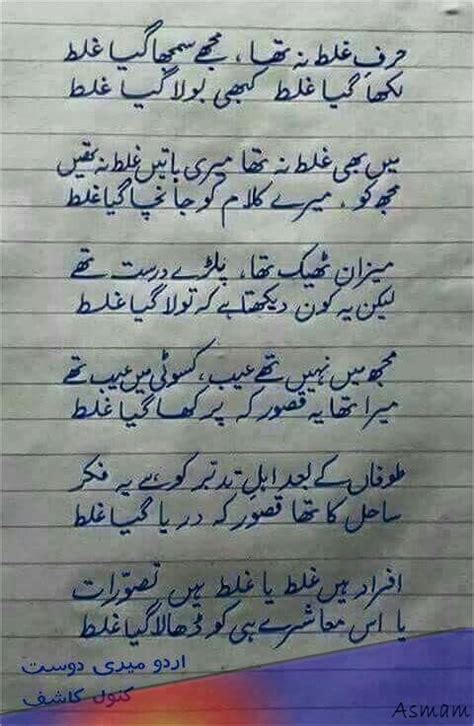 حرفِ غلط نہ تھا، مجھے سمجھا گیا غلط
لکھا گیا غلط کبھی بولا گیا غلط
میں بھی غلط نہ تھا میری باتیں غلط نہ تھیں
مجھ کو، میرے کلام کو جانچا گیا غلط
میزان ٹھیک تھا، پلڑے درست تھے
لیکن یہ کون دیکھتا ہے کہ تولا گیا غلط
مجھ میں نہیں تھے عیب، کسوٹی میں عیب تھے
میرا تھا یہ قصور کہ پرکھا گیا غلط
طوفاں کے بعد اہلِ تدبر کو ہے یہ فکر
ساحل کا تھا قصور کہ دریا گیا غلط
افراد ہیں غلط یا غلط ہیں تصوّرات
یا اس معاشرے ہی کو ڈھالا گیا غلط
اردو میری دوست
کنول کاشف
Asmam